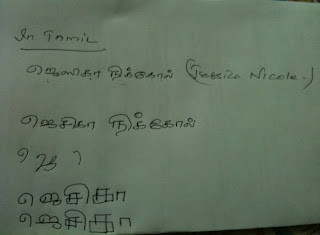 In Tamil
ஜெஸிகா நிக்கோல் (Jessica Nicole.)
ஜெசிகா நிக்கோல்
ஜெசிகா
ஜெசிகா